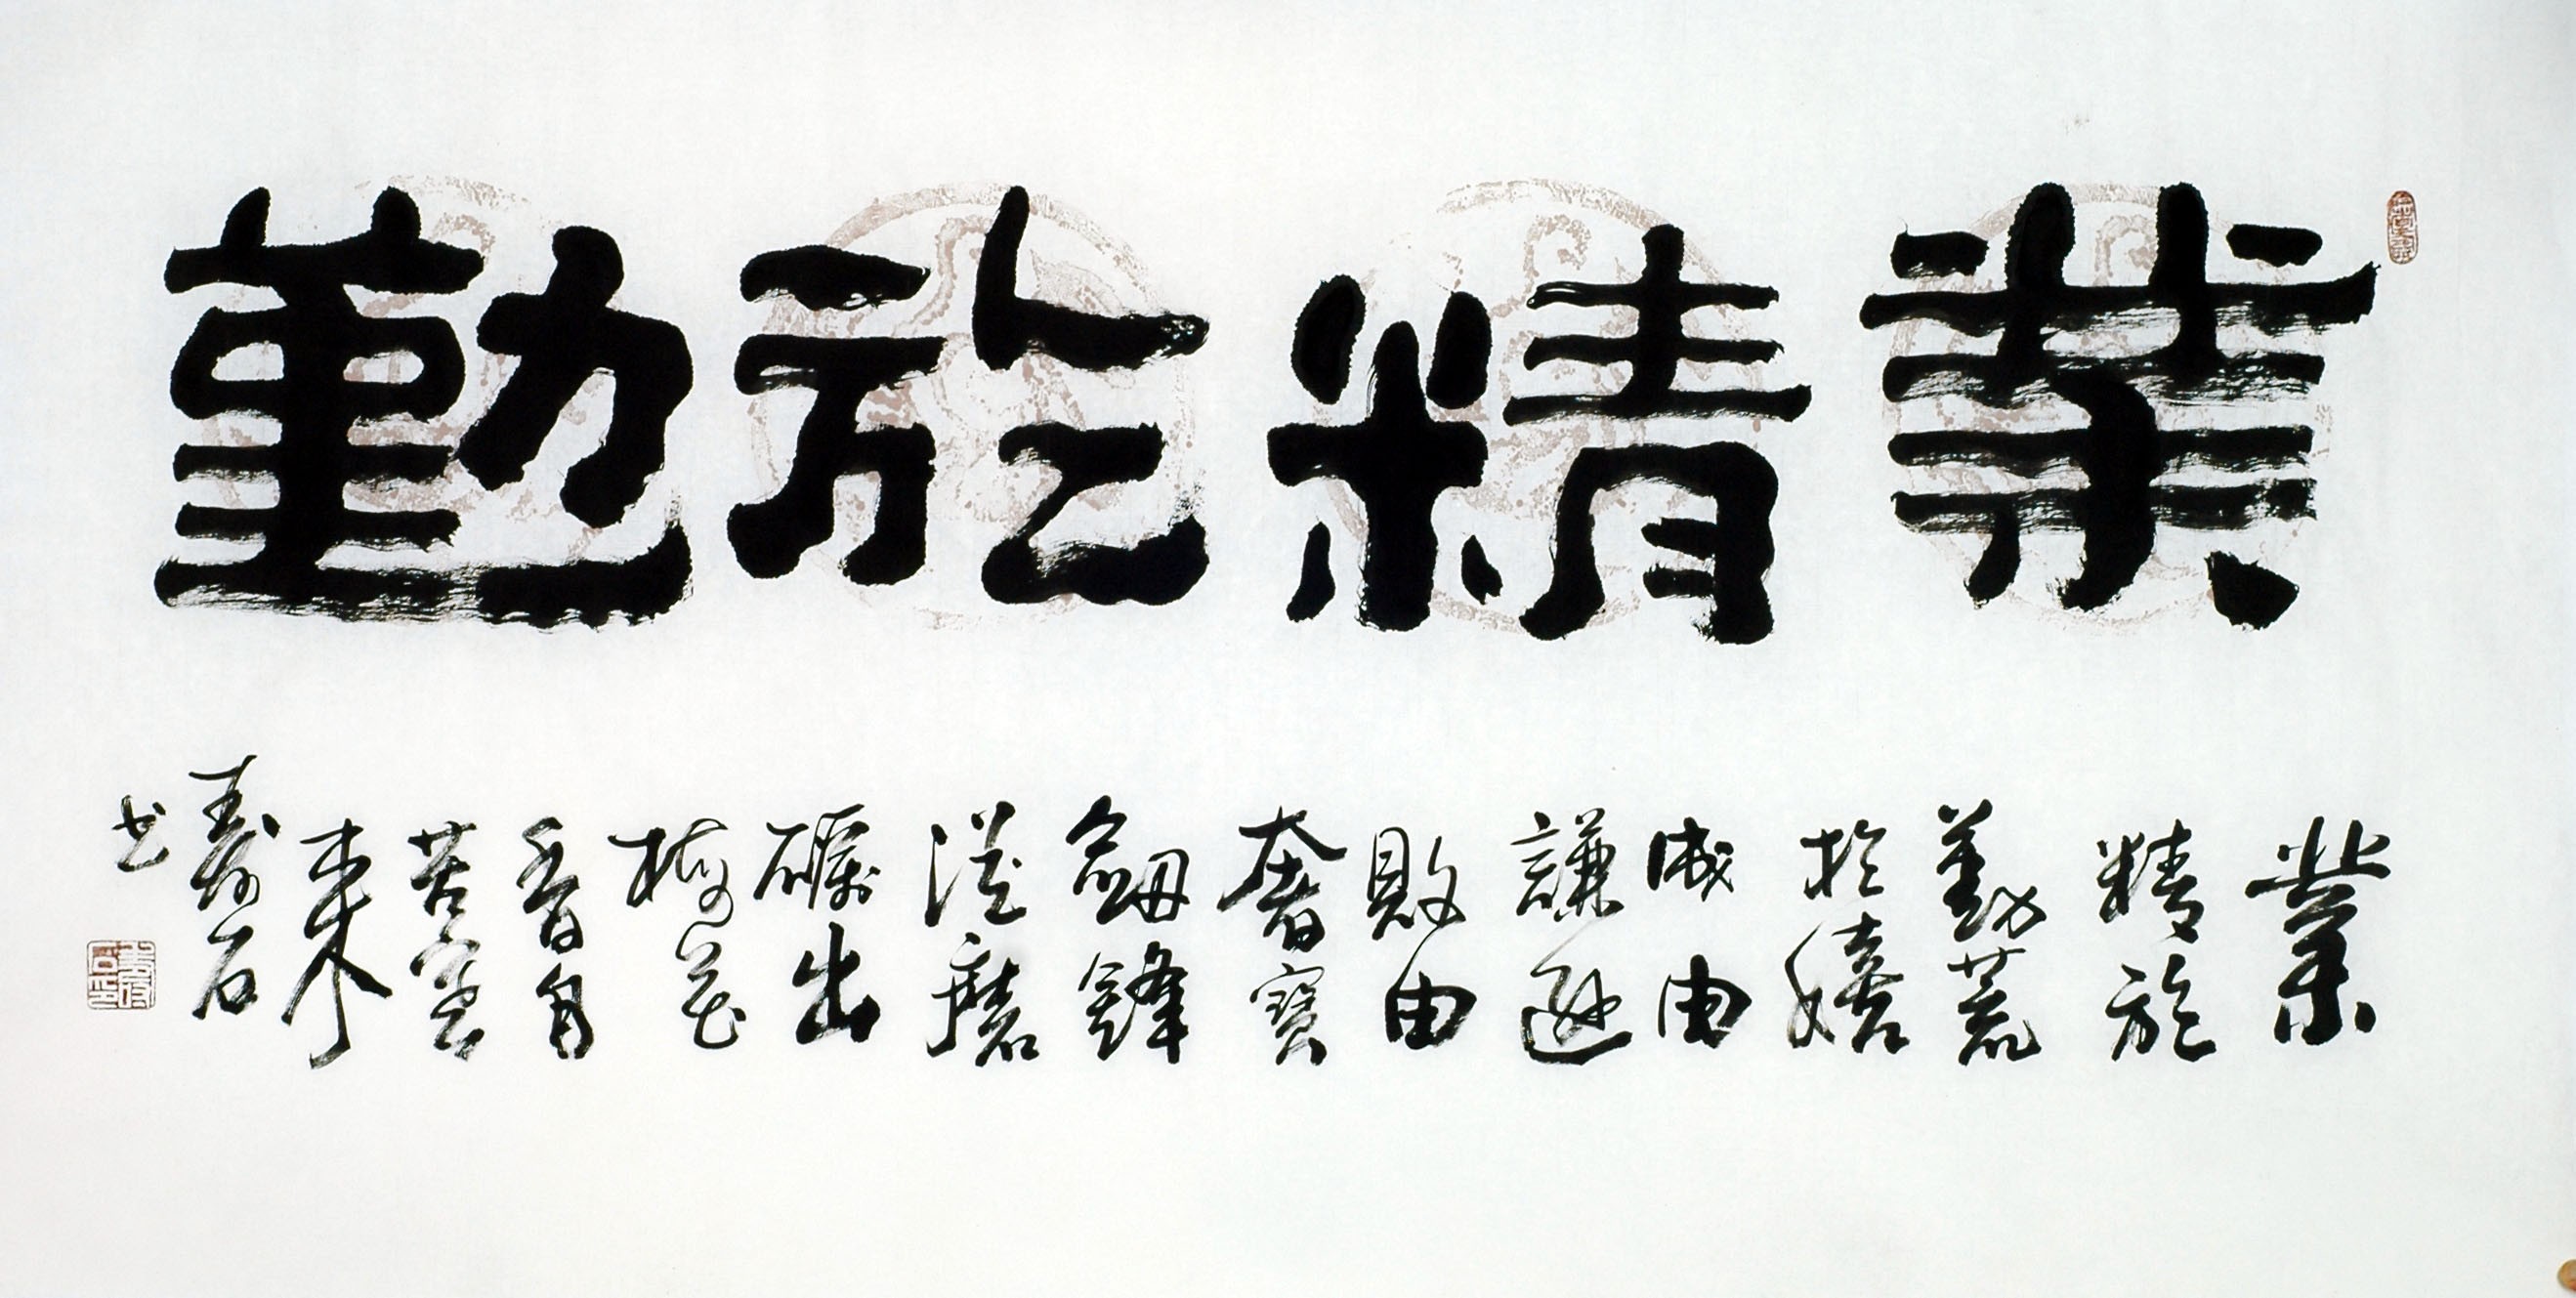 業精於勤
業
精於
勤荒
於嬉
成由
謙遜
敗由
奢寶
劍鋒
從磨
礪出
梅花
香自
苦寒
來
壽石
书